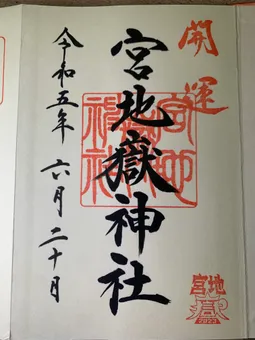 開運
宮地嶽神社
令和五年六月二十日
宮地
嶽
2023